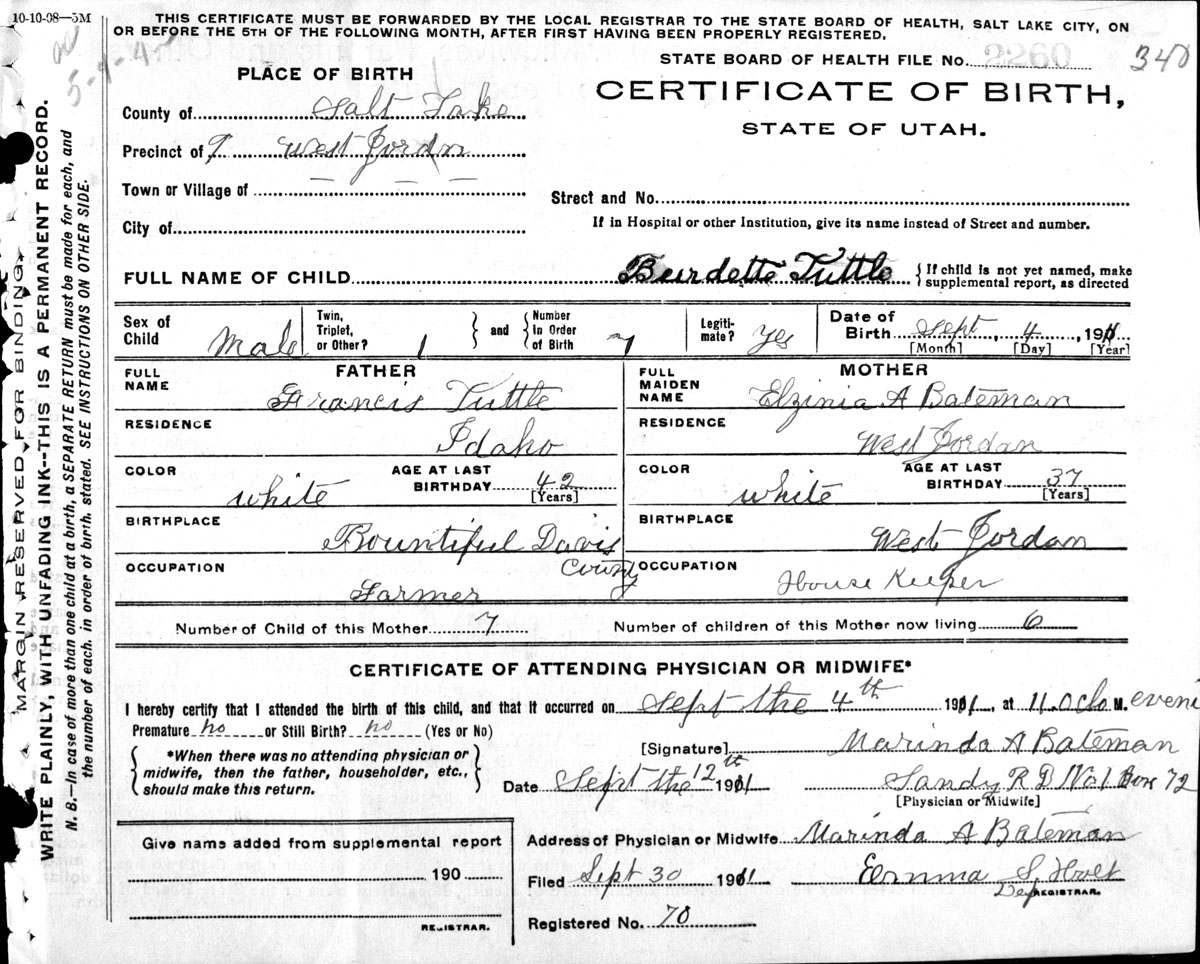 10-10-08—5M
THIS CERTIFICATE MUST BE FORWARDED BY THE LOCAL REGISTRAR TO THE STATE BOARD OF HEALTH, SALT LAKE CITY, ON
OR BEFORE THE 5TH OF THE FOLLOWING MONTH, AFTER FIRST HAVING BEEN PROPERLY REGISTERED.
STATE BOARD OF HEALTH FILE No. 2260
340
PLACE OF BIRTH
CERTIFICATE OF BIRTH,
STATE OF UTAH.
County of Salt Lake
Precinct of West Jordn
Town or Village of
Street and No.
City of
If in Hospital or other Institution, give its name instead of Street and number.
FULL NAME OF CHILD Burdette Tuttle { If child is not yet named, make
supplemental report, as directed
Sex of
Child Male
Twin,
Triplet,
or Other? 1
} and {
Number
in Order
of Birth 7
Legiti-
mate? Yes
Date of
Birth Sept 4, 1911
[Month] [Day] [Year]
FATHER
FULL
NAME
Francis Tuttle
RESIDENCE
Idaho
COLOR
white
AGE AT LAST
BIRTHDAY 42
[Years]
BIRTHPLACE
Bountiful Davis
County
OCCUPATION
Farmer
MOTHER
FULL
MAIDEN
NAME
Elzinia A Bateman
RESIDENCE
West Jordan
COLOR
white
AGE AT LAST
BIRTHDAY 37
[Years]
BIRTHPLACE
West Jordan
OCCUPATION
House Keeper
Number of Child of this Mother 7
Number of children of this Mother now living 6
CERTIFICATE OF ATTENDING PHYSICIAN OR MIDWIFE*
I hereby certify that I attended the birth of this child, and that it occurred on Sept the 4th 1911, at 11 oclo M. eveni
Premature? no or Still Birth? no (Yes or No)
{ *When there was no attending physician or
midwife, then the father, householder, etc.,
should make this return. }
[Signature] Marinda A Bateman
Date Sept the 12th 1911 Sandy R D No 1 Box 72
[Physician or Midwife]
Give name added from supplemental report
190
REGISTRAR.
Address of Physician or Midwife Marinda A Bateman
Filed Sept 30 1911 Emma S. Holt
Dep REGISTRAR.
Registered No. 70
MARGIN RESERVED FOR BINDING
WRITE PLAINLY, WITH UNFADING INK--THIS IS A PERMANENT RECORD.
N. B.—In case of more than one child at a birth, a SEPARATE RETURN must be made for each, and
the number of each, in order of birth, stated. SEE INSTRUCTIONS ON OTHER SIDE.